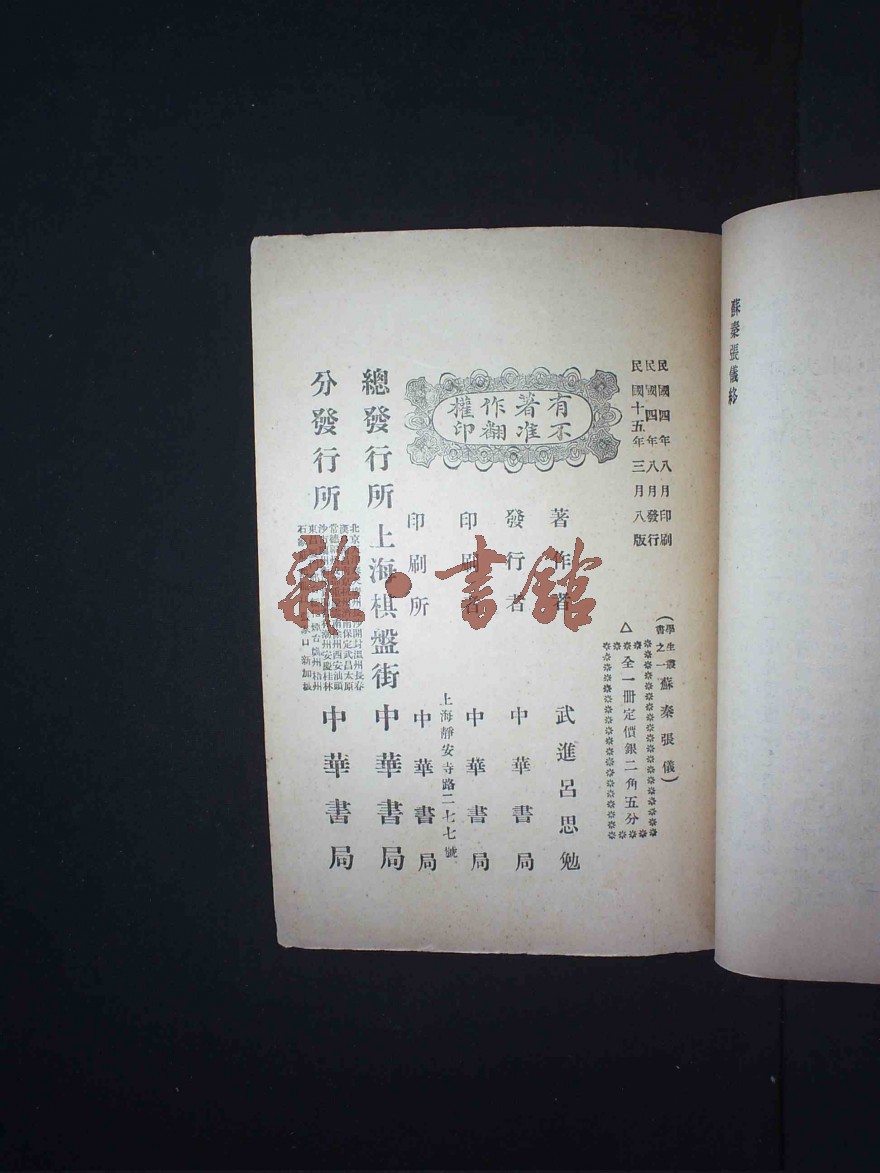 蘇秦張儀終
民國四年八月印刷
民國四年八月發行
民國十五年三月八版
(學生叢書之一蘇秦張儀)
△全一冊定價銀二角五分
有著作權
不准翻印
著作者 武進呂思勉
發行者 中華書局
印刷者 中華書局
印刷所 上海靜安寺路二七七號 中華書局
總發行所 上海棋盤街 中華書局
分發行所 中華書局
雜·書館